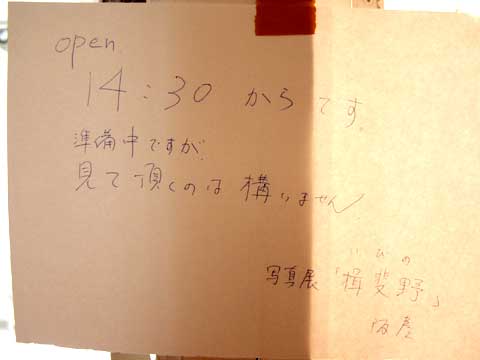 open.
14:30 からです。
準備中ですが、
見て頂くのは構いません。
いびの
写真展「揖斐野」